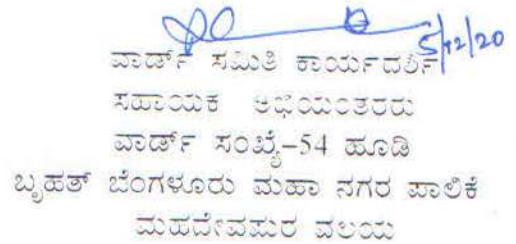 5/12/20
ವಾರ್ಡ್ ಸಮಿತಿ ಕಾರ್ಯದರ್ಶಿ
ಸಹಾಯಕ ಅಭಿಯಂತರರು
ವಾರ್ಡ್ ಸಂಖ್ಯೆ-54 ಹೂಡಿ
ಬೃಹತ್ ಬೆಂಗಳೂರು ಮಹಾ ನಗರ ಪಾಲಿಕೆ
ಮಹದೇವಪುರ ವಲಯ